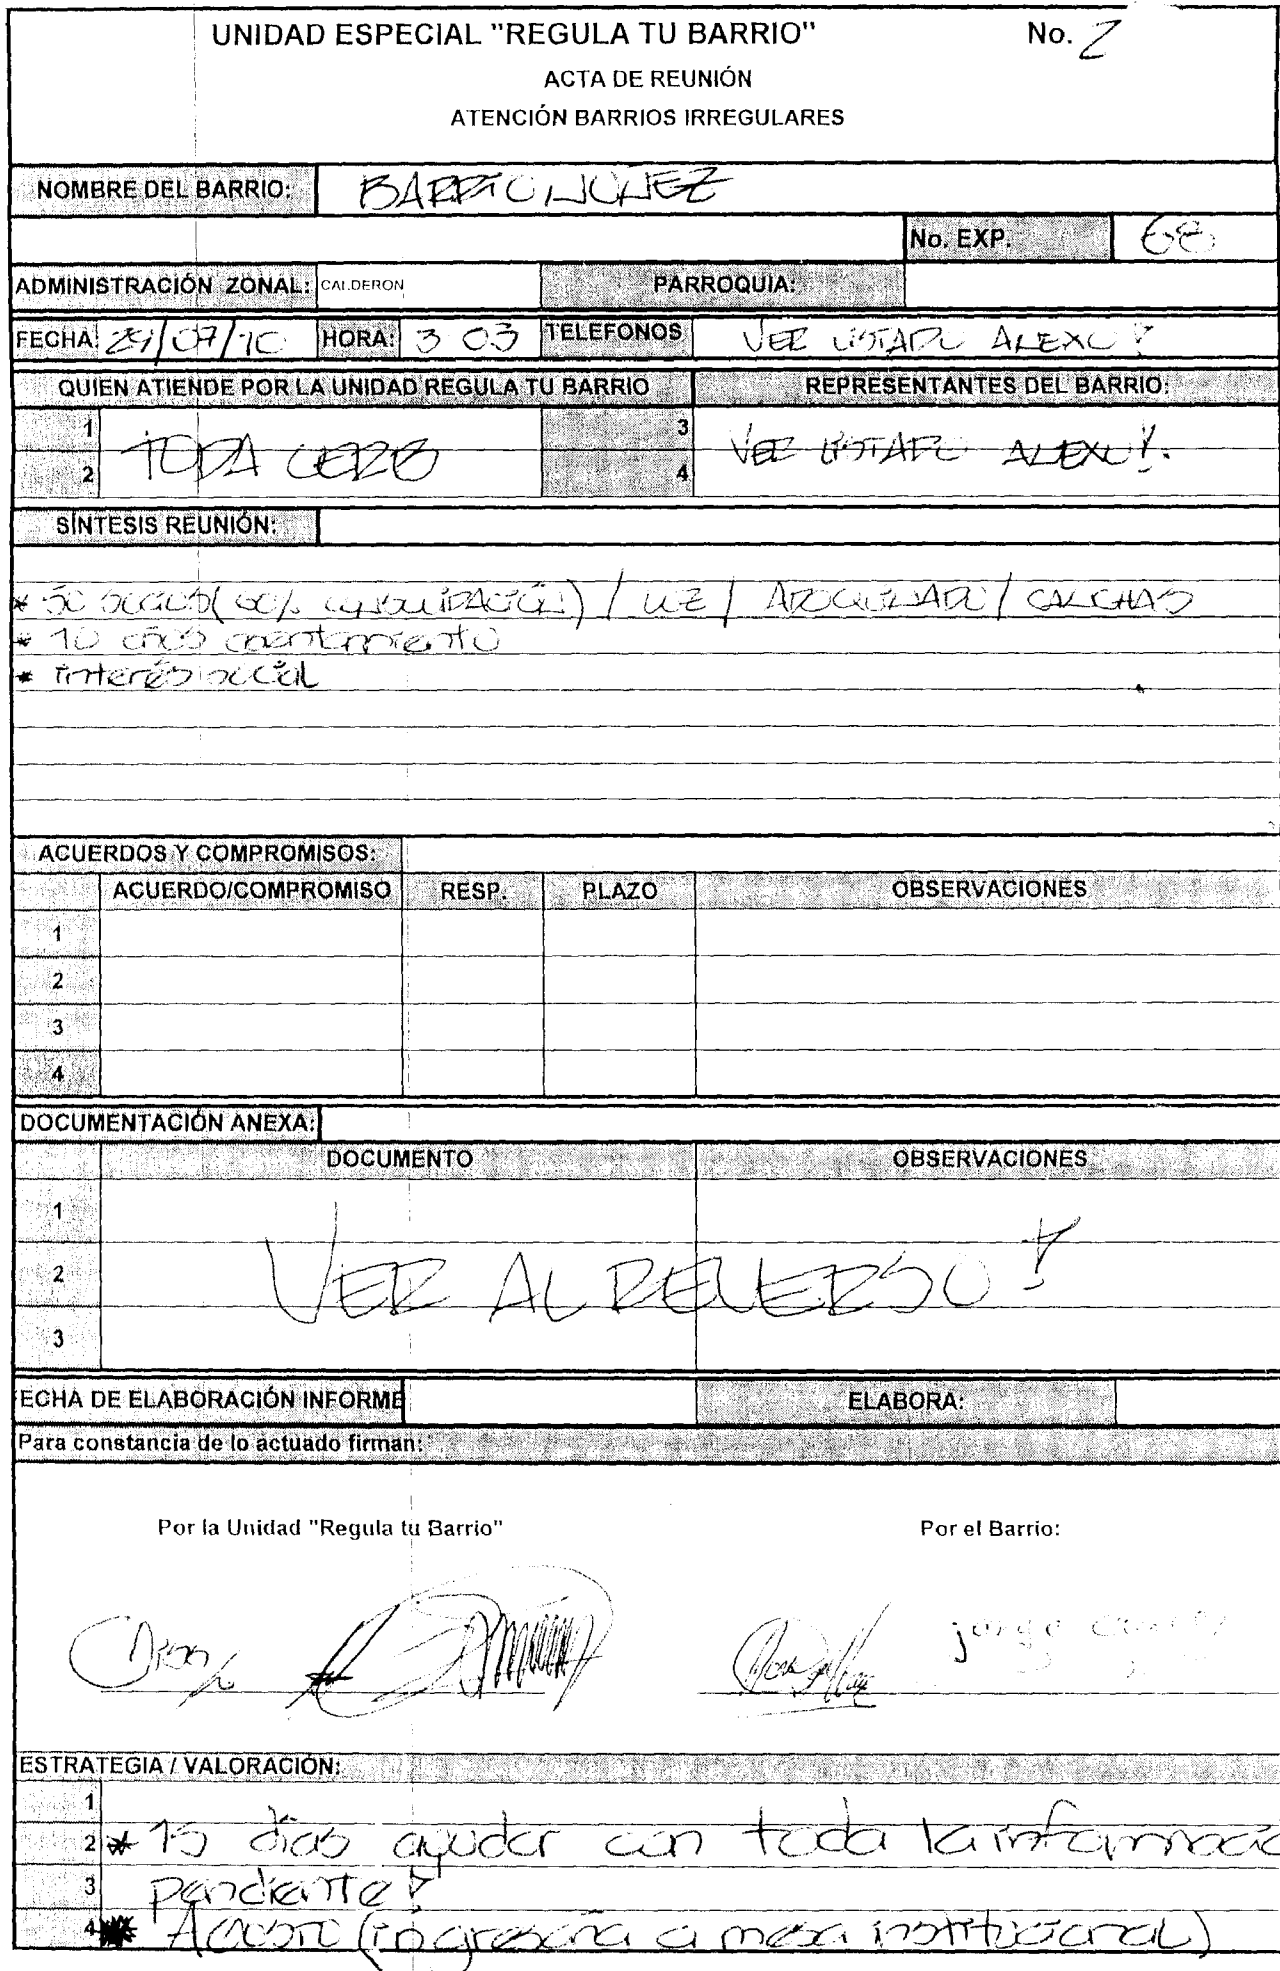 UNIDAD ESPECIAL "REGULA TU BARRIO" No. 2
ACTA DE REUNIÓN
ATENCIÓN BARRIOS IRREGULARES
NOMBRE DEL BARRIO: BARRIO NUÑEZ
No. EXP. 68
ADMINISTRACIÓN ZONAL: CALDERON PARROQUIA:
FECHA: /07/10 HORA: 3 03 TELEFONOS VER LISTADO ANEXO!
QUIEN ATIENDE POR LA UNIDAD REGULA TU BARRIO REPRESENTANTES DEL BARRIO:
1 3
TODA UERB VER LISTADO ANEXO!.
2 4
SÍNTESIS REUNIÓN:
* 50 (60% CONSOLIDACIÓN) / LUZ / ADOQUINADO / CANCHAS
* 10 años asentamiento
* interés social
ACUERDOS Y COMPROMISOS:
ACUERDO/COMPROMISO RESP. PLAZO OBSERVACIONES
1
2
3
4
DOCUMENTACIÓN ANEXA:
DOCUMENTO OBSERVACIONES
1
2 VER AL REVERSO!
3
ECHA DE ELABORACIÓN INFORME ELABORA:
Para constancia de lo actuado firman:
Por la Unidad "Regula tu Barrio" Por el Barrio:
jorge
ESTRATEGIA / VALORACIÓN:
1
2 * 15 días ayudar con toda la informació
3 pendiente!
4 * AGOSTO (ingresaría a mesa institucional)